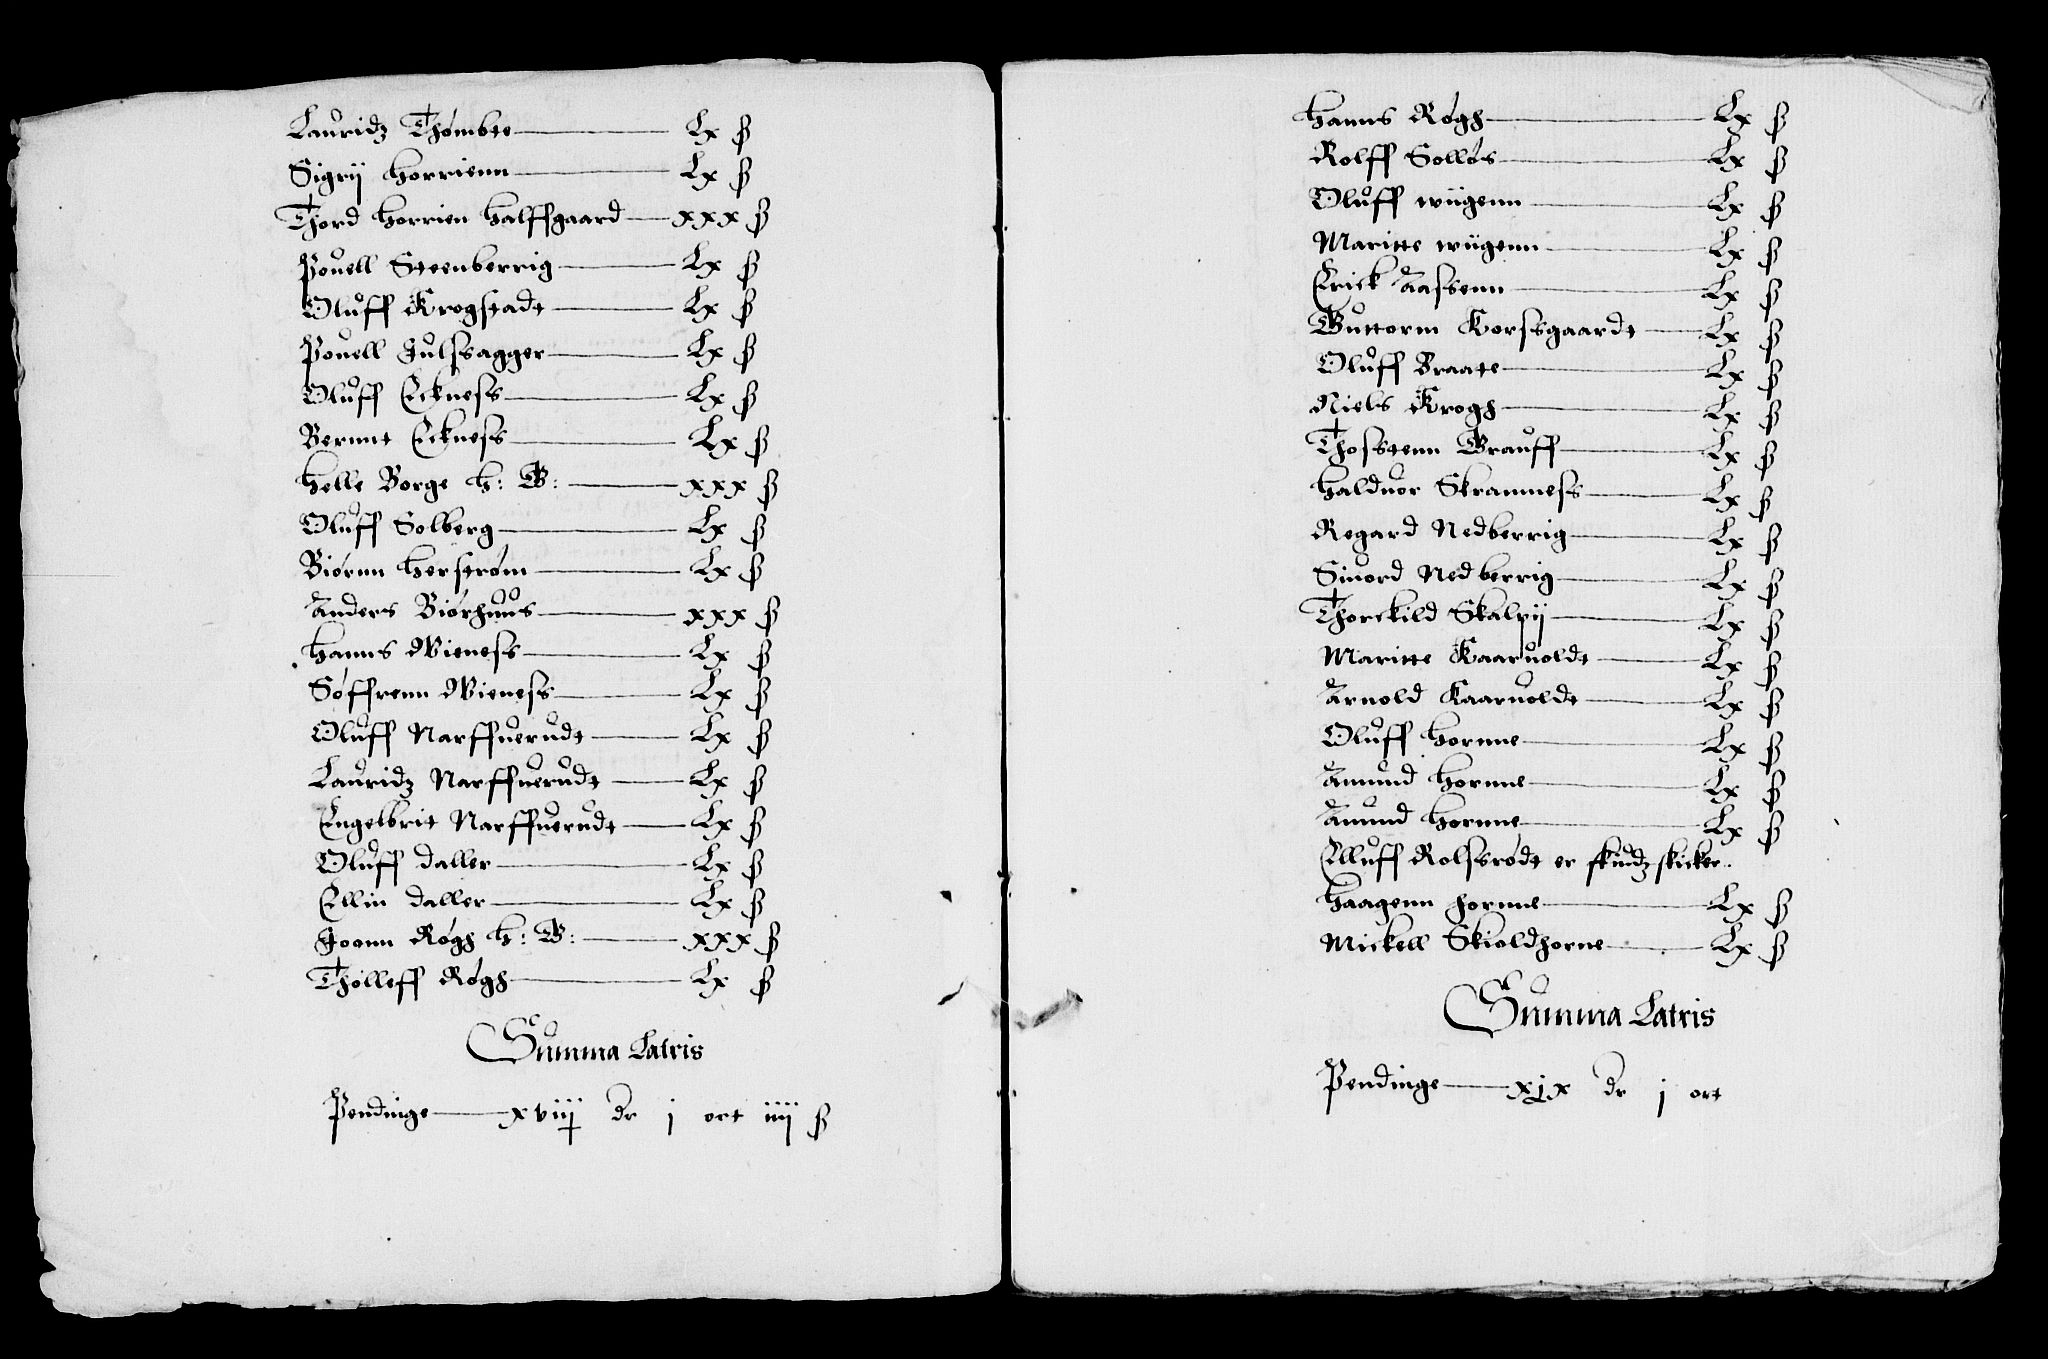 Lauridz Thombte Lx ß
Sigrij Horrienn Lx ß
Thord Horrien Halffgaard xxx ß
Pouell Steenberrig Lx ß
Oluff Krogstadt Lx ß
Pouell Julssagger Lx ß
Oluff Eckness Lx ß
Bernnt Eckness Lx ß
Helle Borge H: G: xxx ß
Oluff Solberg Lx ß
Biørnn Herstrøm Lx ß
Anders Biørhuus xxx ß
Hanns Wieness Lx ß
Søffrenn Wieness Lx ß
Oluff Narffuerudt Lx ß
Lauridz Narffuerudt Lx ß
Engelbrit Narffuerudt Lx ß
Oluff Daller Lx ß
Ellin Daller Lx ß
Joann Røgh H: G: xxx ß
Tholleff Røgh Lx ß
Summa Latris
Pendinge xviij dr j ort iiij ß
Hanns Røgh Lx ß
Rolff Solløs Lx ß
Oluff wiigenn Lx ß
Maritte wiigenn Lx ß
Erick Aassenn Lx ß
Guttorm Korssgaardt Lx ß
Oluff Braate Lx ß
Niels Krogh Lx ß
Thosstenn Grauff Lx ß
Halduor Skramness Lx ß
Regard Nedberrig Lx ß
Siuord Nedberrig Lx ß
Thorckild Skalpij Lx ß
Maritte Kaaruoldt Lx ß
Arnold Kaaruoldt Lx ß
Oluff Hornne Lx ß
Amund Hornne Lx ß
Amund Hornne Lx ß
Elluff Rolssrødt er skudz skicker.
Haagenn Hornne Lx ß
Mickell Skioldhorne Lx ß
Summa Latris
Pendinge xix dr j ort